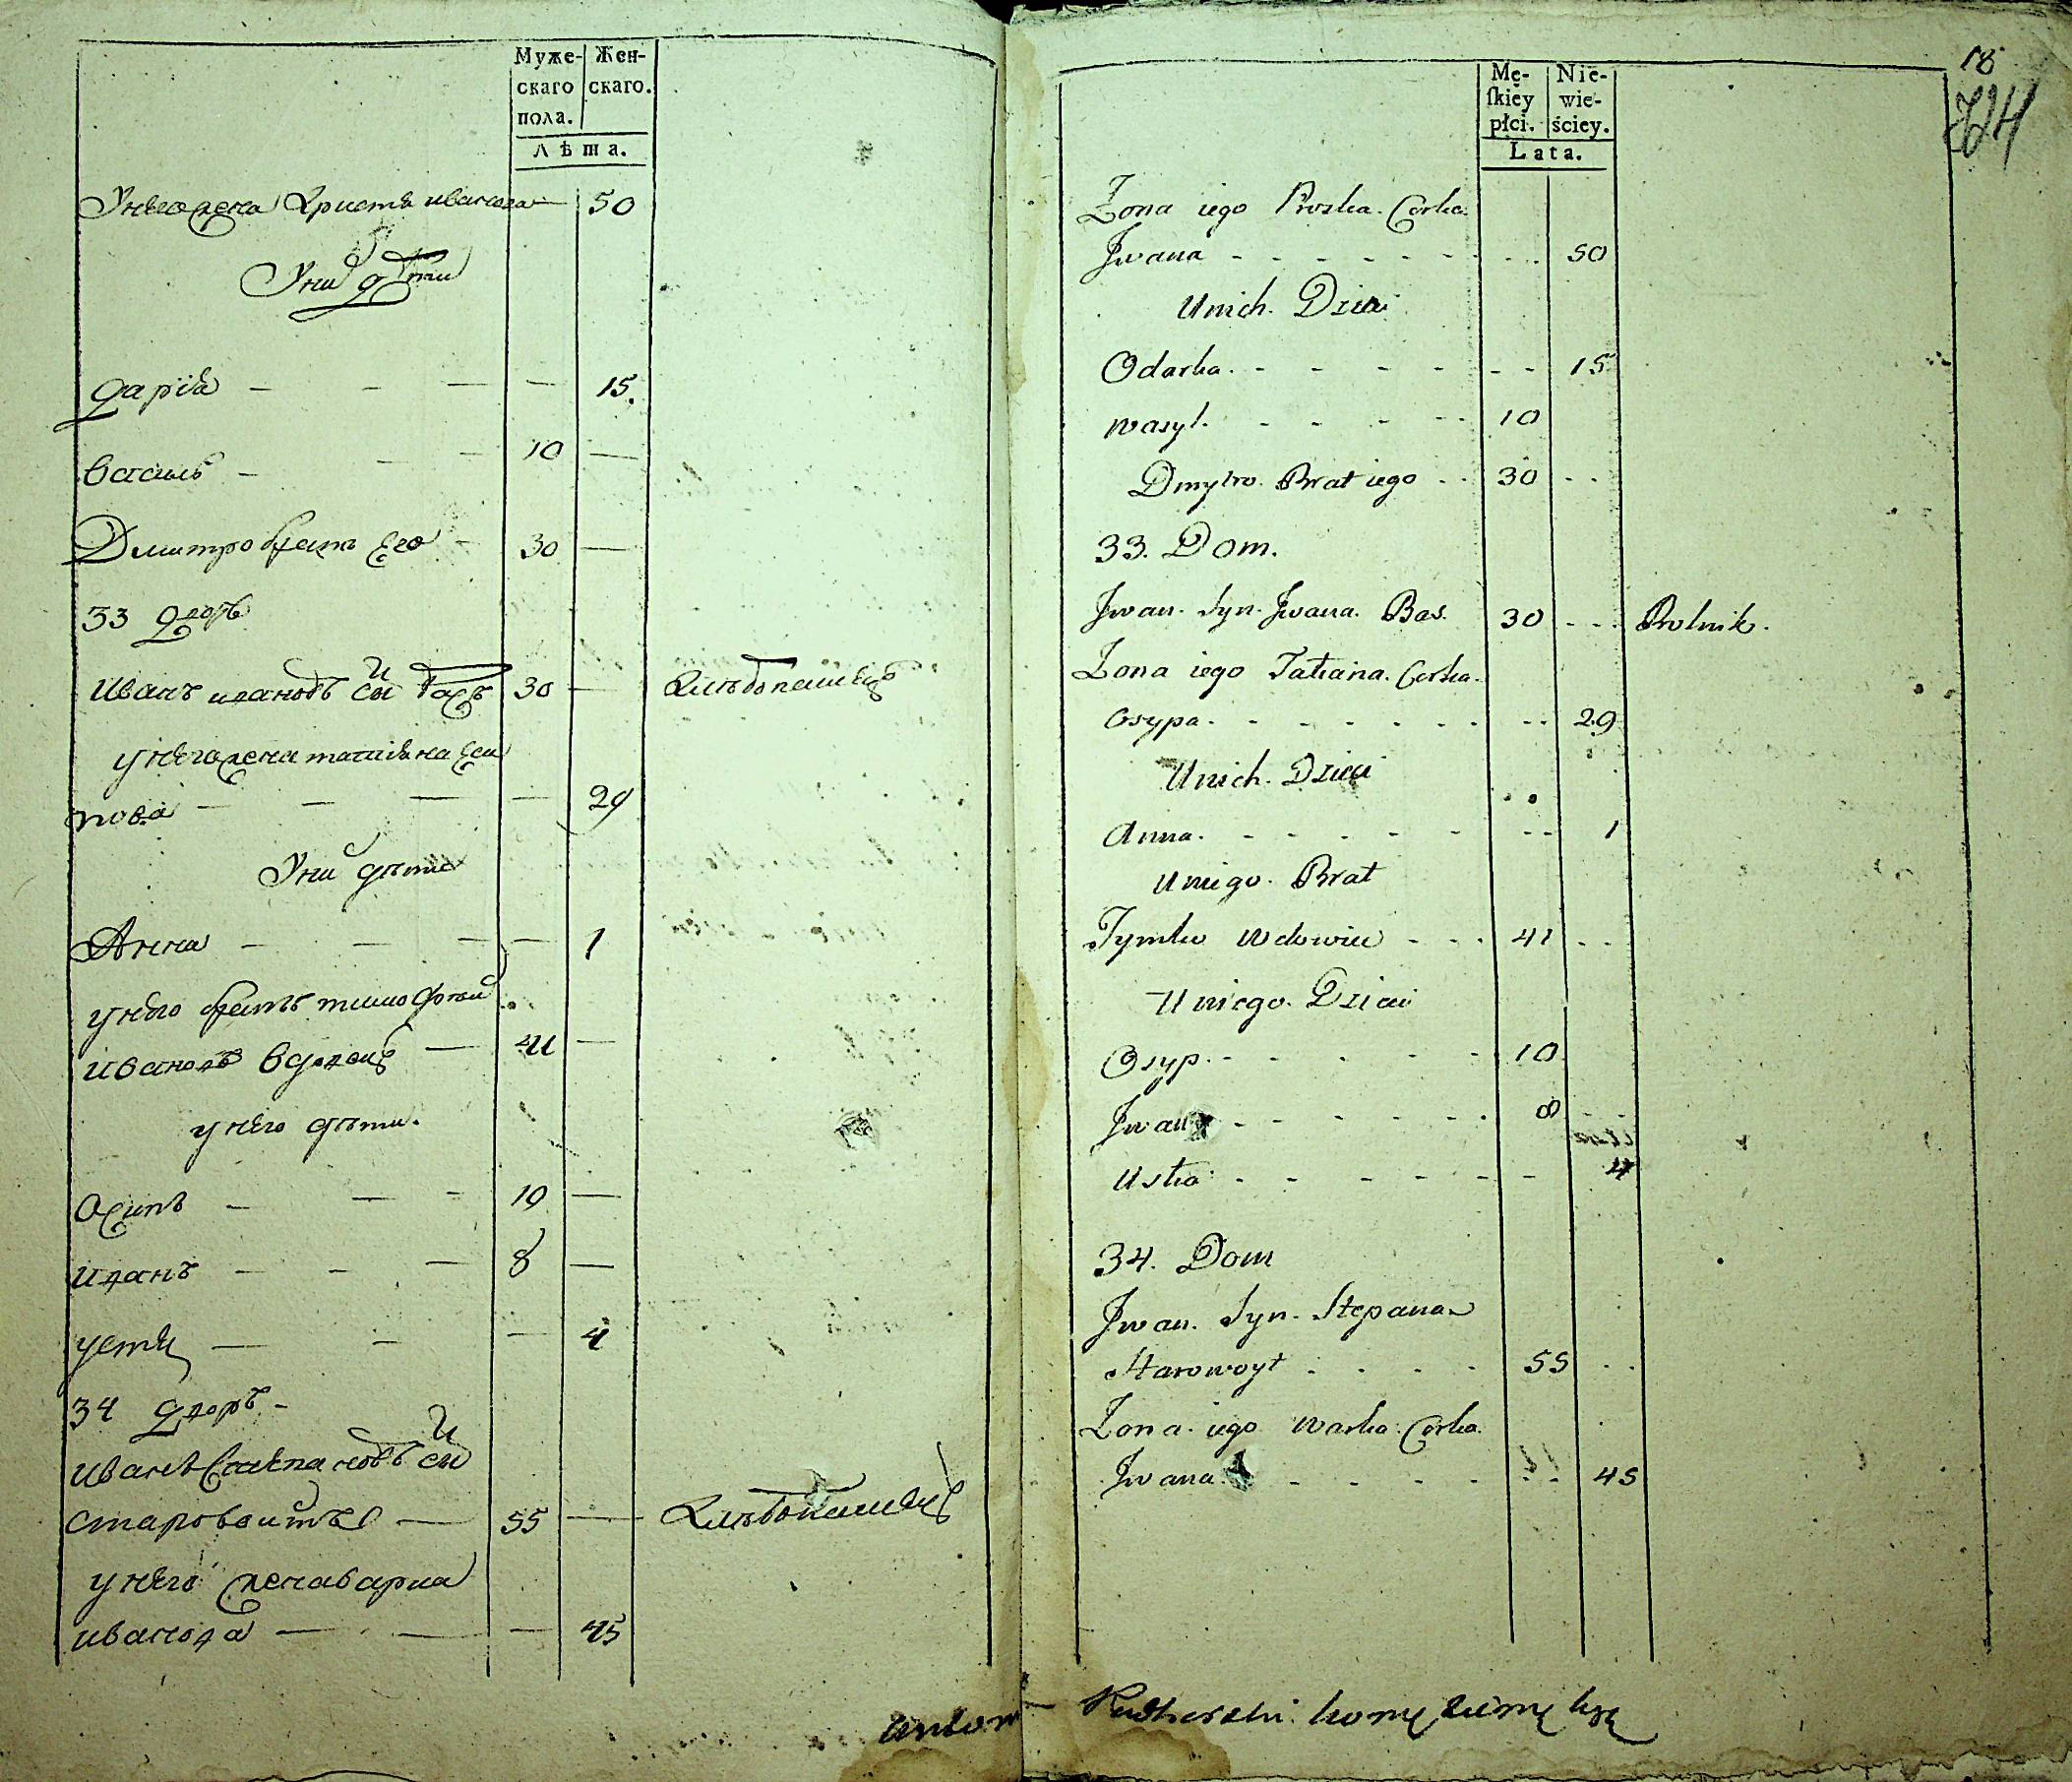 Муже-
скаго
пола.
Жен-
скаго.
Лѣта.
У него жена Христя иванова — 50
У ни дѣти
Дарія — — — — 15.
василь — — — 10 —
Дмитро братъ его — 30 —
33 дворъ
иванъ ивановъ сынъ Басъ 30 — хлѣбопашецъ
у него жена татияна еси
пова — — — — 29
У ни дѣти
Анна — — — — 1
у него братъ тимофей
ивановъ вдовецъ — 41 —
у него дѣти.
Осипъ — — - 10 —
иванъ — - — 8 —
устя — - — 4
34 дворъ -
иванъ Степановъ сынъ
старовойтъ — 55 — хлѣбопашецъ
у него жена варка
иванова — — — 45
18
724
Mę-
ſkiey
płci.
Nie-
wie-
ściey.
Lata.
Zona iego Proska. Corka.
Jwana - - - - - - - - - 50
U nich. Dzieci
Odarka. - - - - - - - 15
Wasyl. - - - - - 10
Dmytro. Brat iego - - 30 - -
33. Dom.
Jwan. Syn. Jwana. Bas. 30 - - - Rolnik.
Zona iego Tatiana. Corka.
Osypa. - - - - - - - - - 29
U nich. Dzieci
Anna. - - - - - - - 1
U niego. Brat
Tymko Wdowiec - - - 41 - -
U niego. Dzieci
Osyp. - - - - - - 10
Jwan - - - - - - 8 - -
Usta - - - - - - - 4
34. Dom
Jwan. Syn. Stepana
Starowoyt - - - - 55 - -
Zona. iego Warka. Corka.
Jwana. - - - - - - - - 45